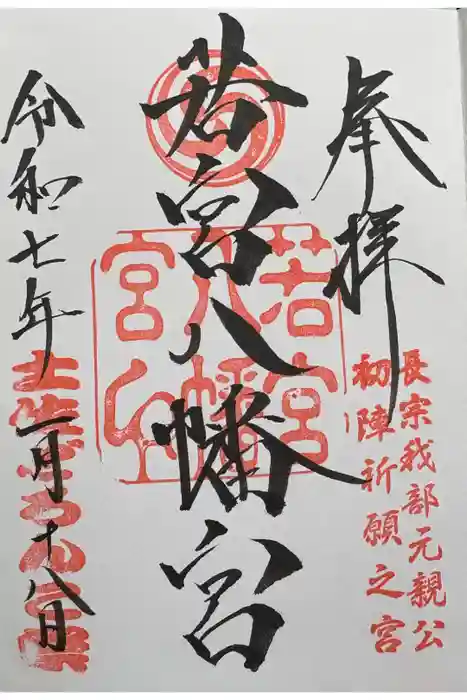 奉拝
長宗我部元親公
初陣祈願之宮
若宮八幡宮
若宮
八幡
宮印
令和七年一月十八日